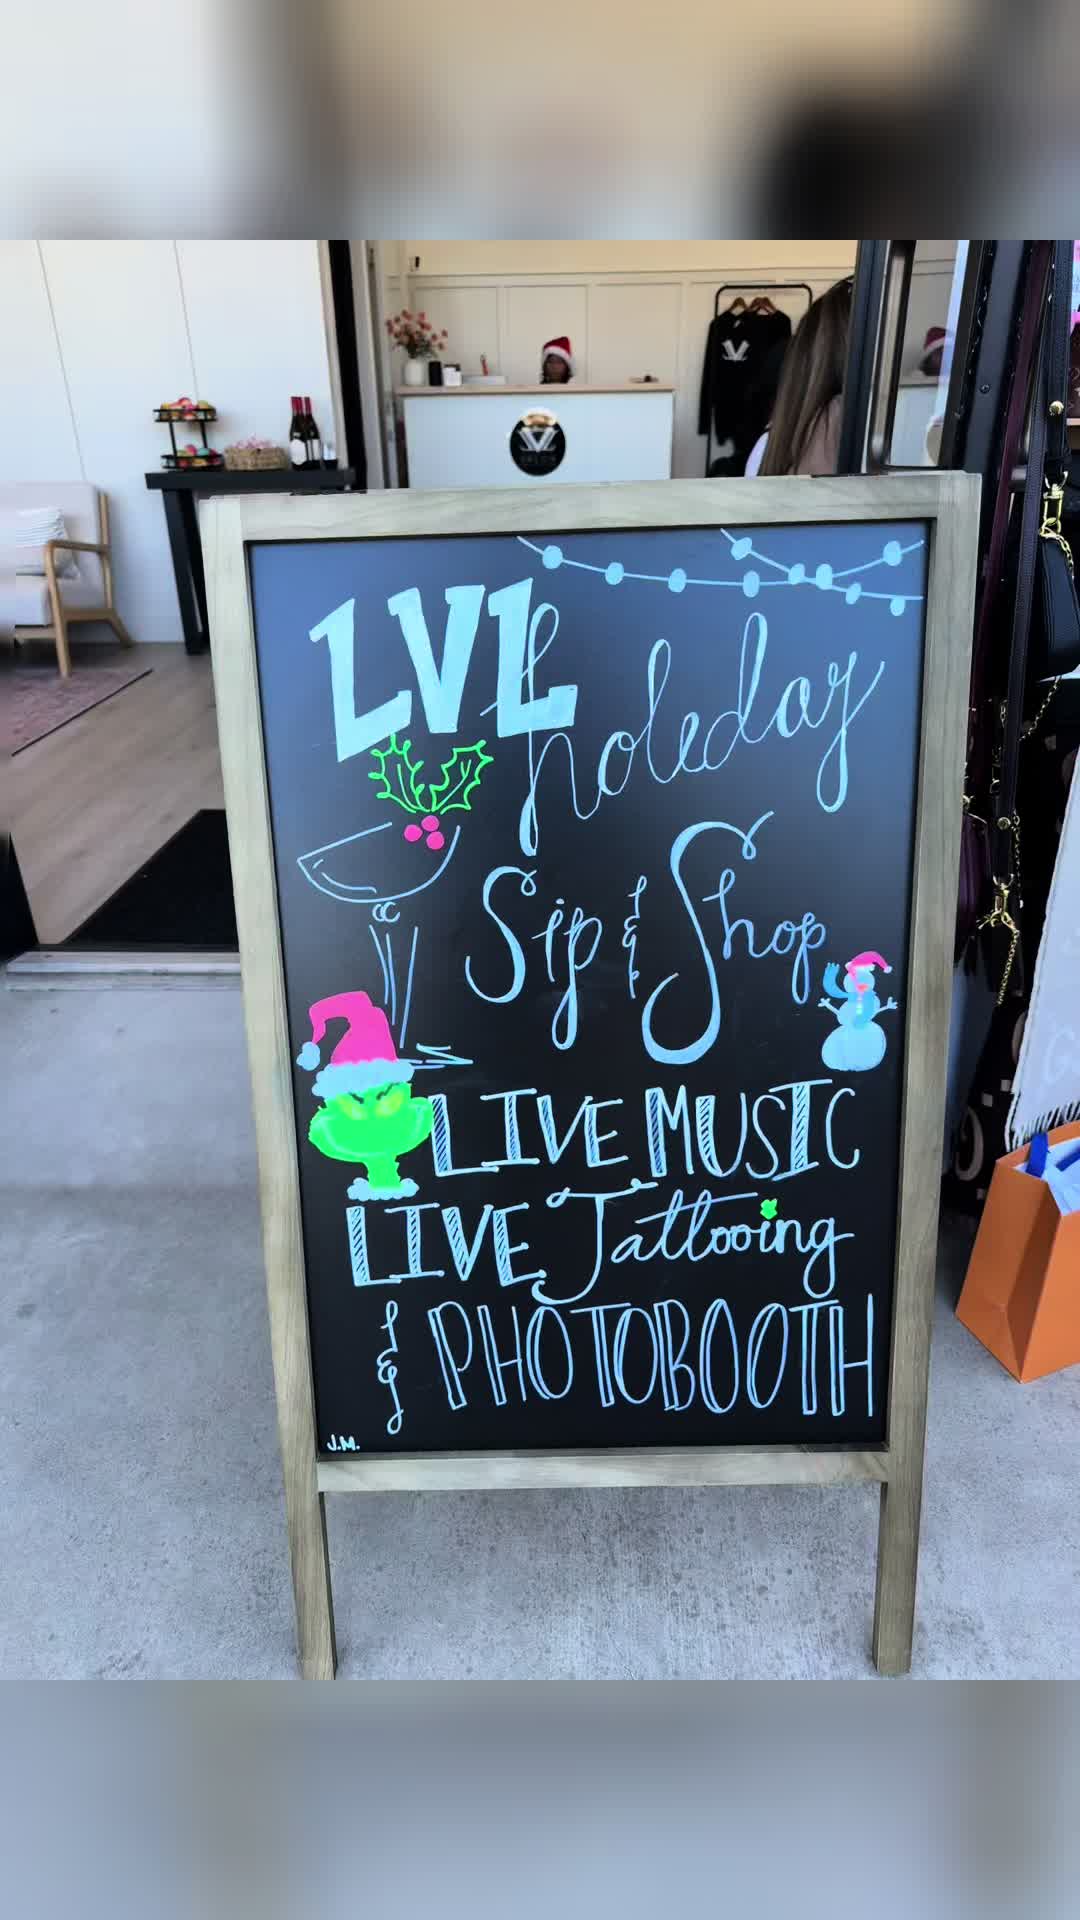 LVL
holeday
Sip & Shop
LIVE MUSIC
LIVE Tattooing
& PHOTOBOOTH
J.M.